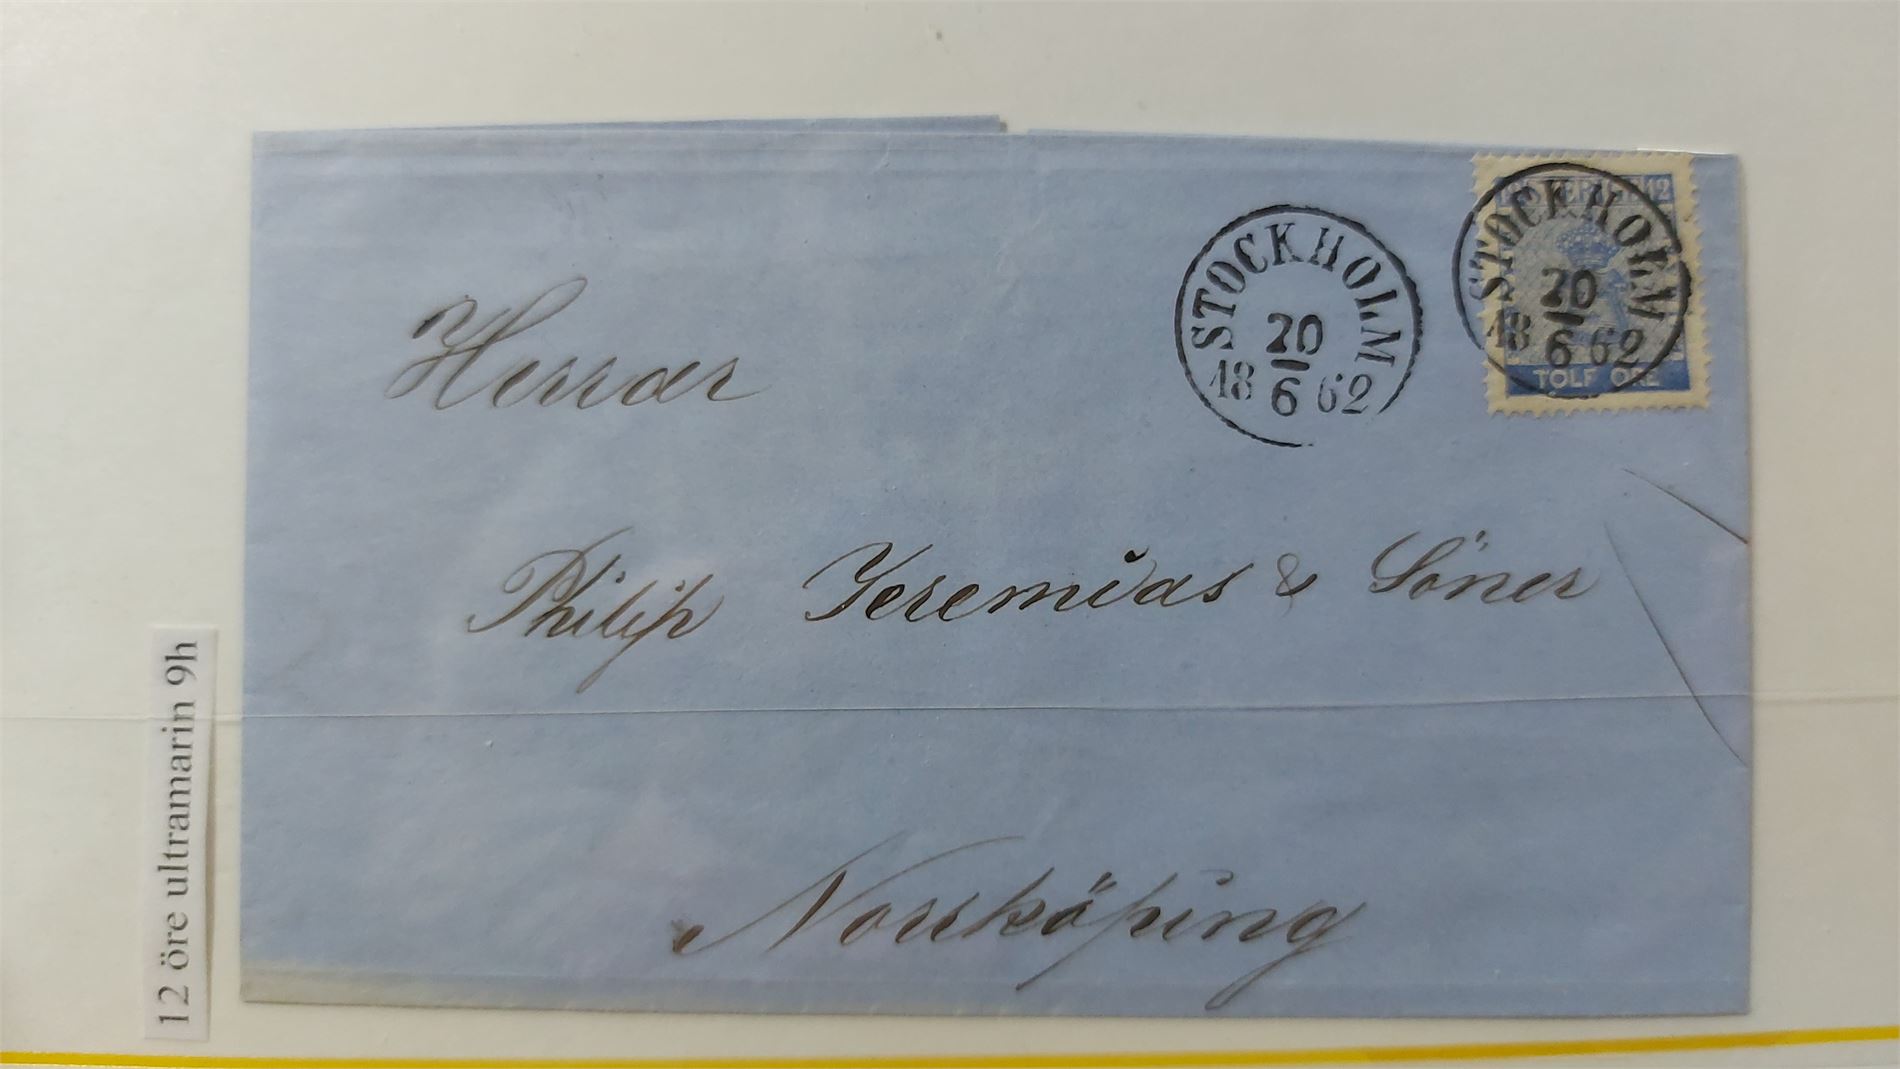 STOCKHOLM
20
18 6 62
12 SVERIGE 12
STOCKHOLM
20
18 6 62
TOLF ÖRE
Herrar
Philip Jeremias & Söner
Norrköping
12 öre ultramarin 9h